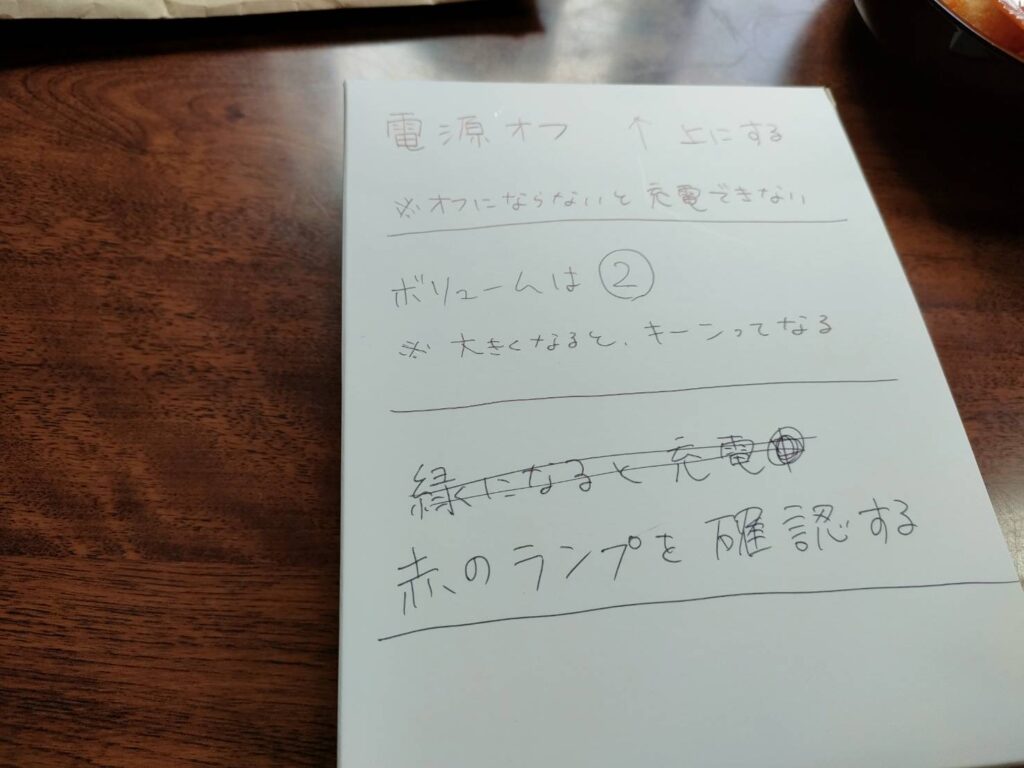 電源オフ ↑ 上にする
※オフにならないと充電できない
ボリュームは ②
※ 大きくなると、キーンってなる
緑になると充電中
赤のランプを確認する